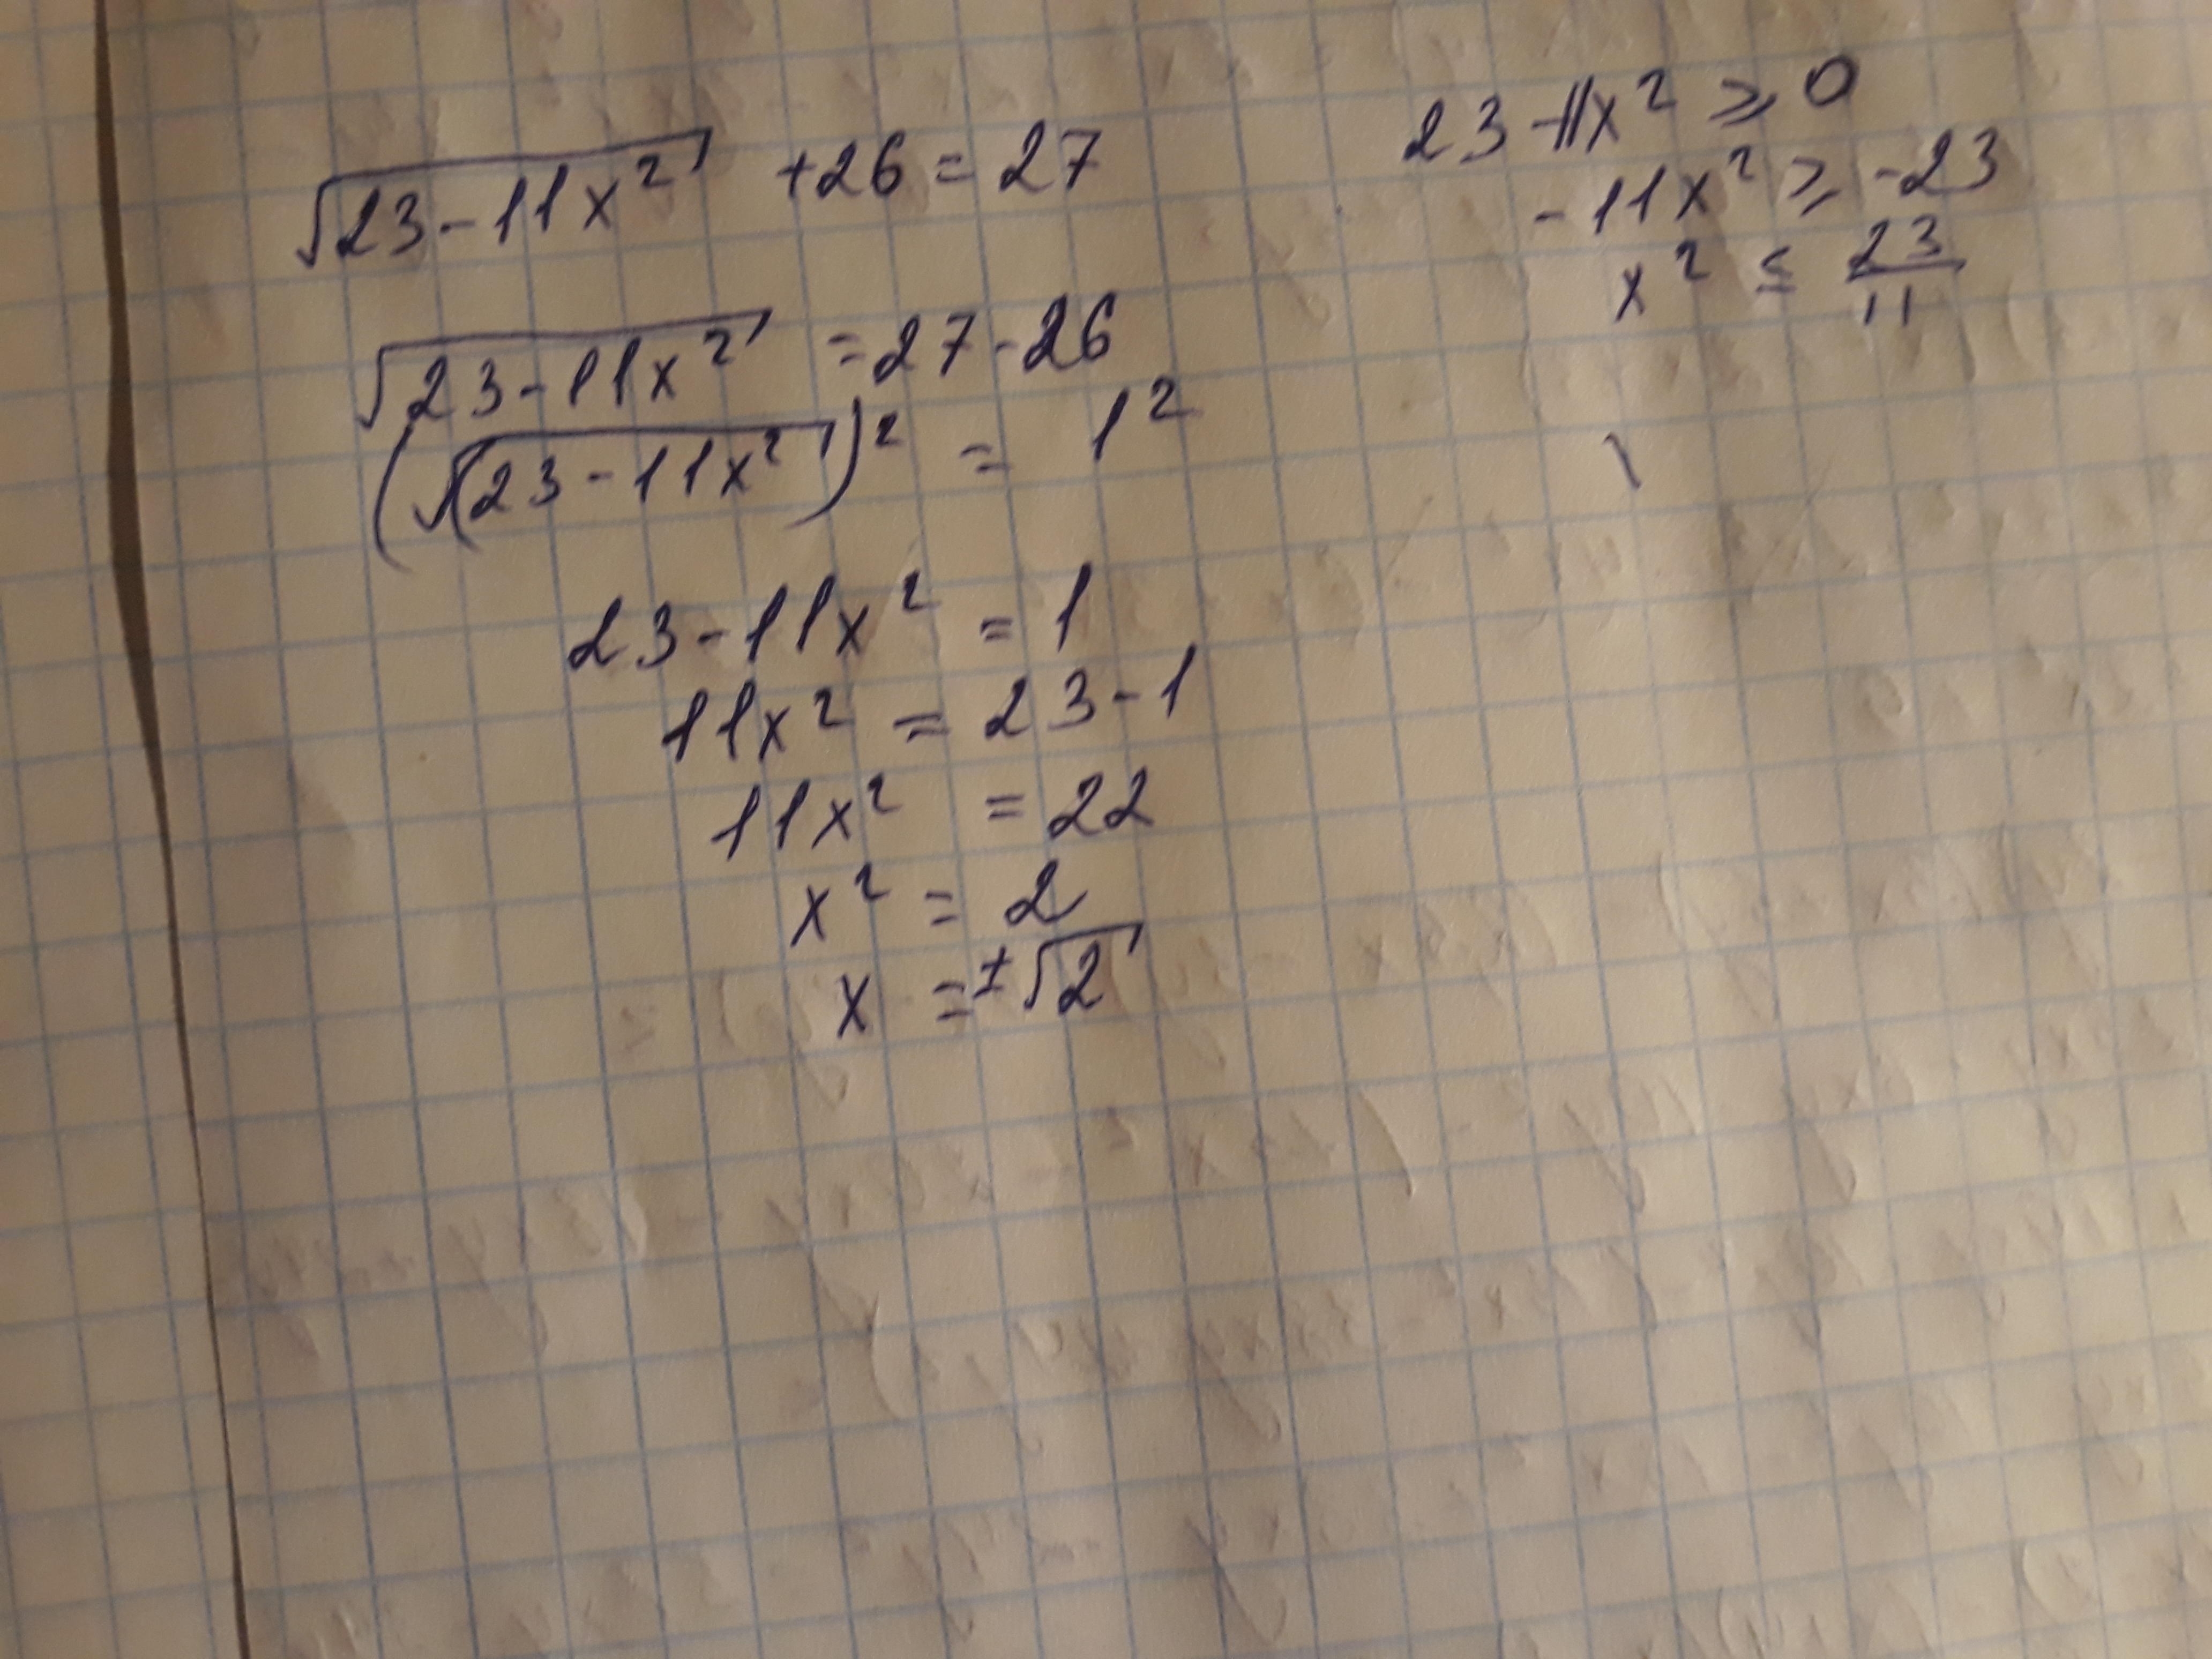 √23-11x² +26=27
√23-11x² =27-26
(√(23-11x²)² = 1²
23-11x² =1
11x² = 23-1
11x² =22
x² = 2
x =±√2
23-11x² ⩾ 0
-11x² ⩾ -23
x² ≤ 23/11